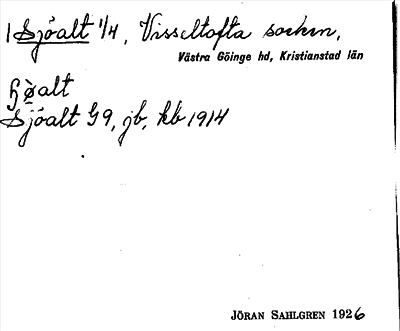 1 Sjöalt 1/4, Visseltofta socken,
Västra Göinge hd, Kristianstad län
Sjöalt G9, jb, kb 1914
JÖRAN SAHLGREN 1926